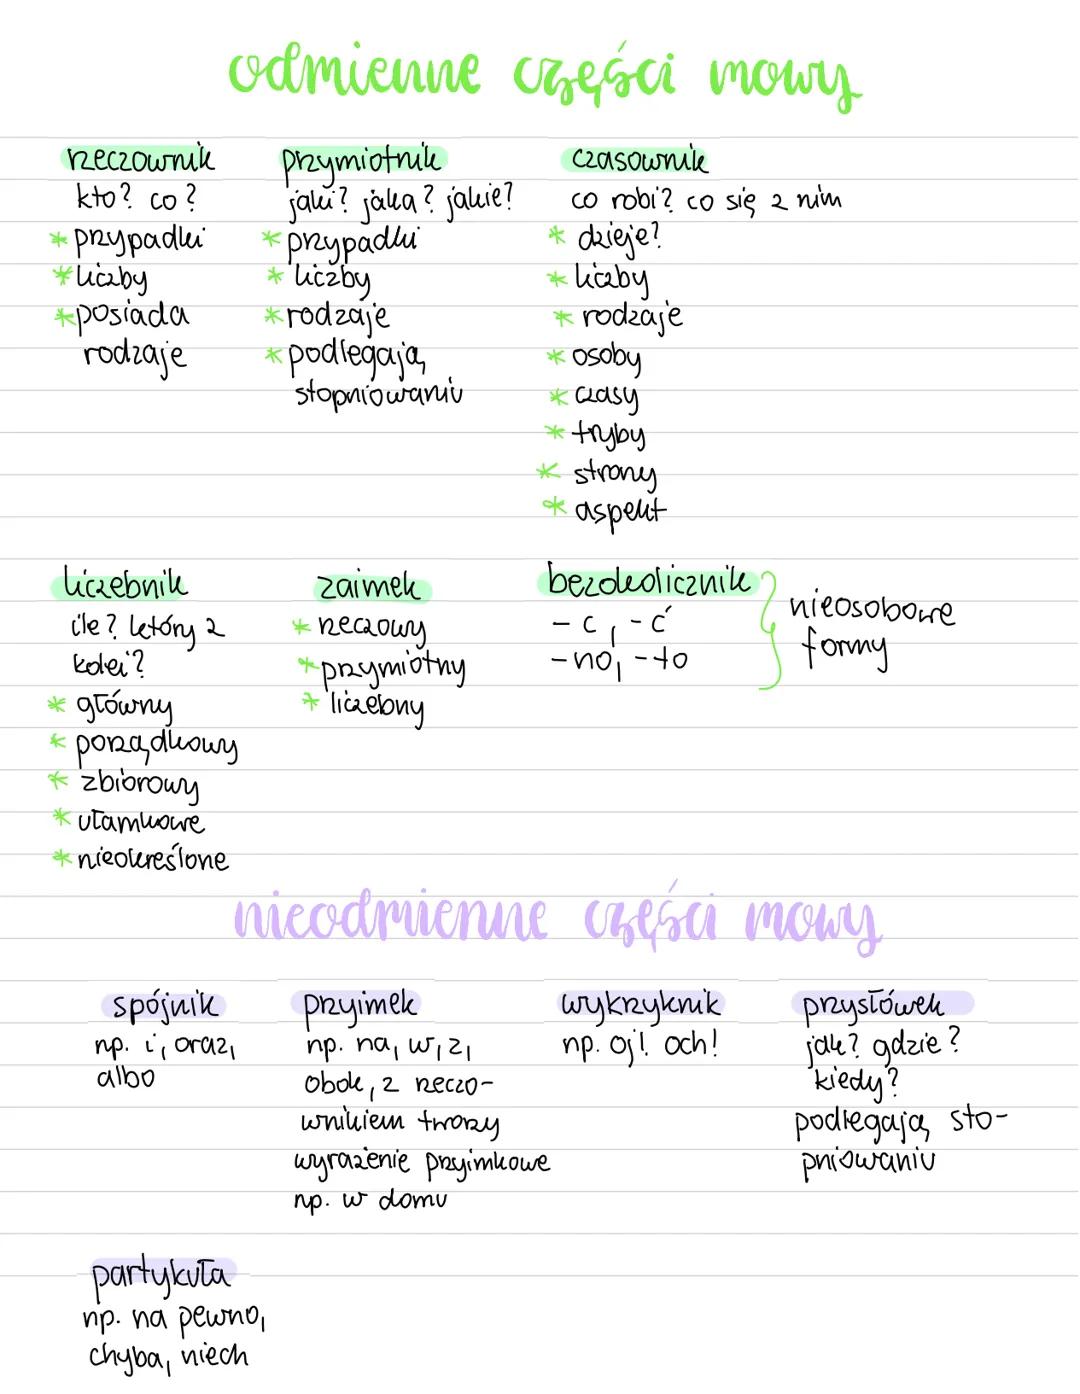 odmienne części mowy
rzeczownik
kto? co?
* przypadki
* liczby
* posiada
rodzaje
przymiotnik
jaki? jaka? jakie?
* przypadki
* liczby
* rodzaje
* podlegają
stopniowaniu
czasownik
co robi? co się z nim
* dzieje?
* liczby
* rodzaje
* osoby
* czasy
* tryby
* strony
* aspekt
liczebnik
ile? który z
kolei?
* główny
* porządkowy
* zbiorowy
* ułamkowe
* nieokreślone
zaimek
* rzeczowy
* przymiotny
* liczebny
bezokolicznik
- c, - ć
- no, - to
nieosobowe
formy
nieodmienne części mowy
spójnik
np. i, oraz,
albo
przyimek
np. na, w, z,
obok, z rzeczo-
wnikiem tworzy
wyrażenie przyimkowe
np. w domu
wykrzyknik
np. oj! och!
przysłówek
jak? gdzie?
kiedy?
podlegają sto-
pniowaniu
partykuła
np. na pewno,
chyba, niech